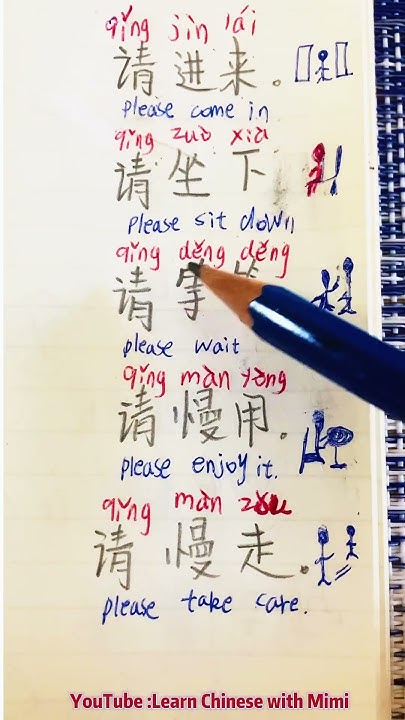 qǐng jìn lái
请进来。
please come in
qǐng zuò xià
请坐下
please sit down
qǐng děng děng
请等
please wait
qǐng màn yòng
请慢用.
please enjoy it.
qǐng màn zǒu
请慢走.
please take care.
YouTube :Learn Chinese with Mimi